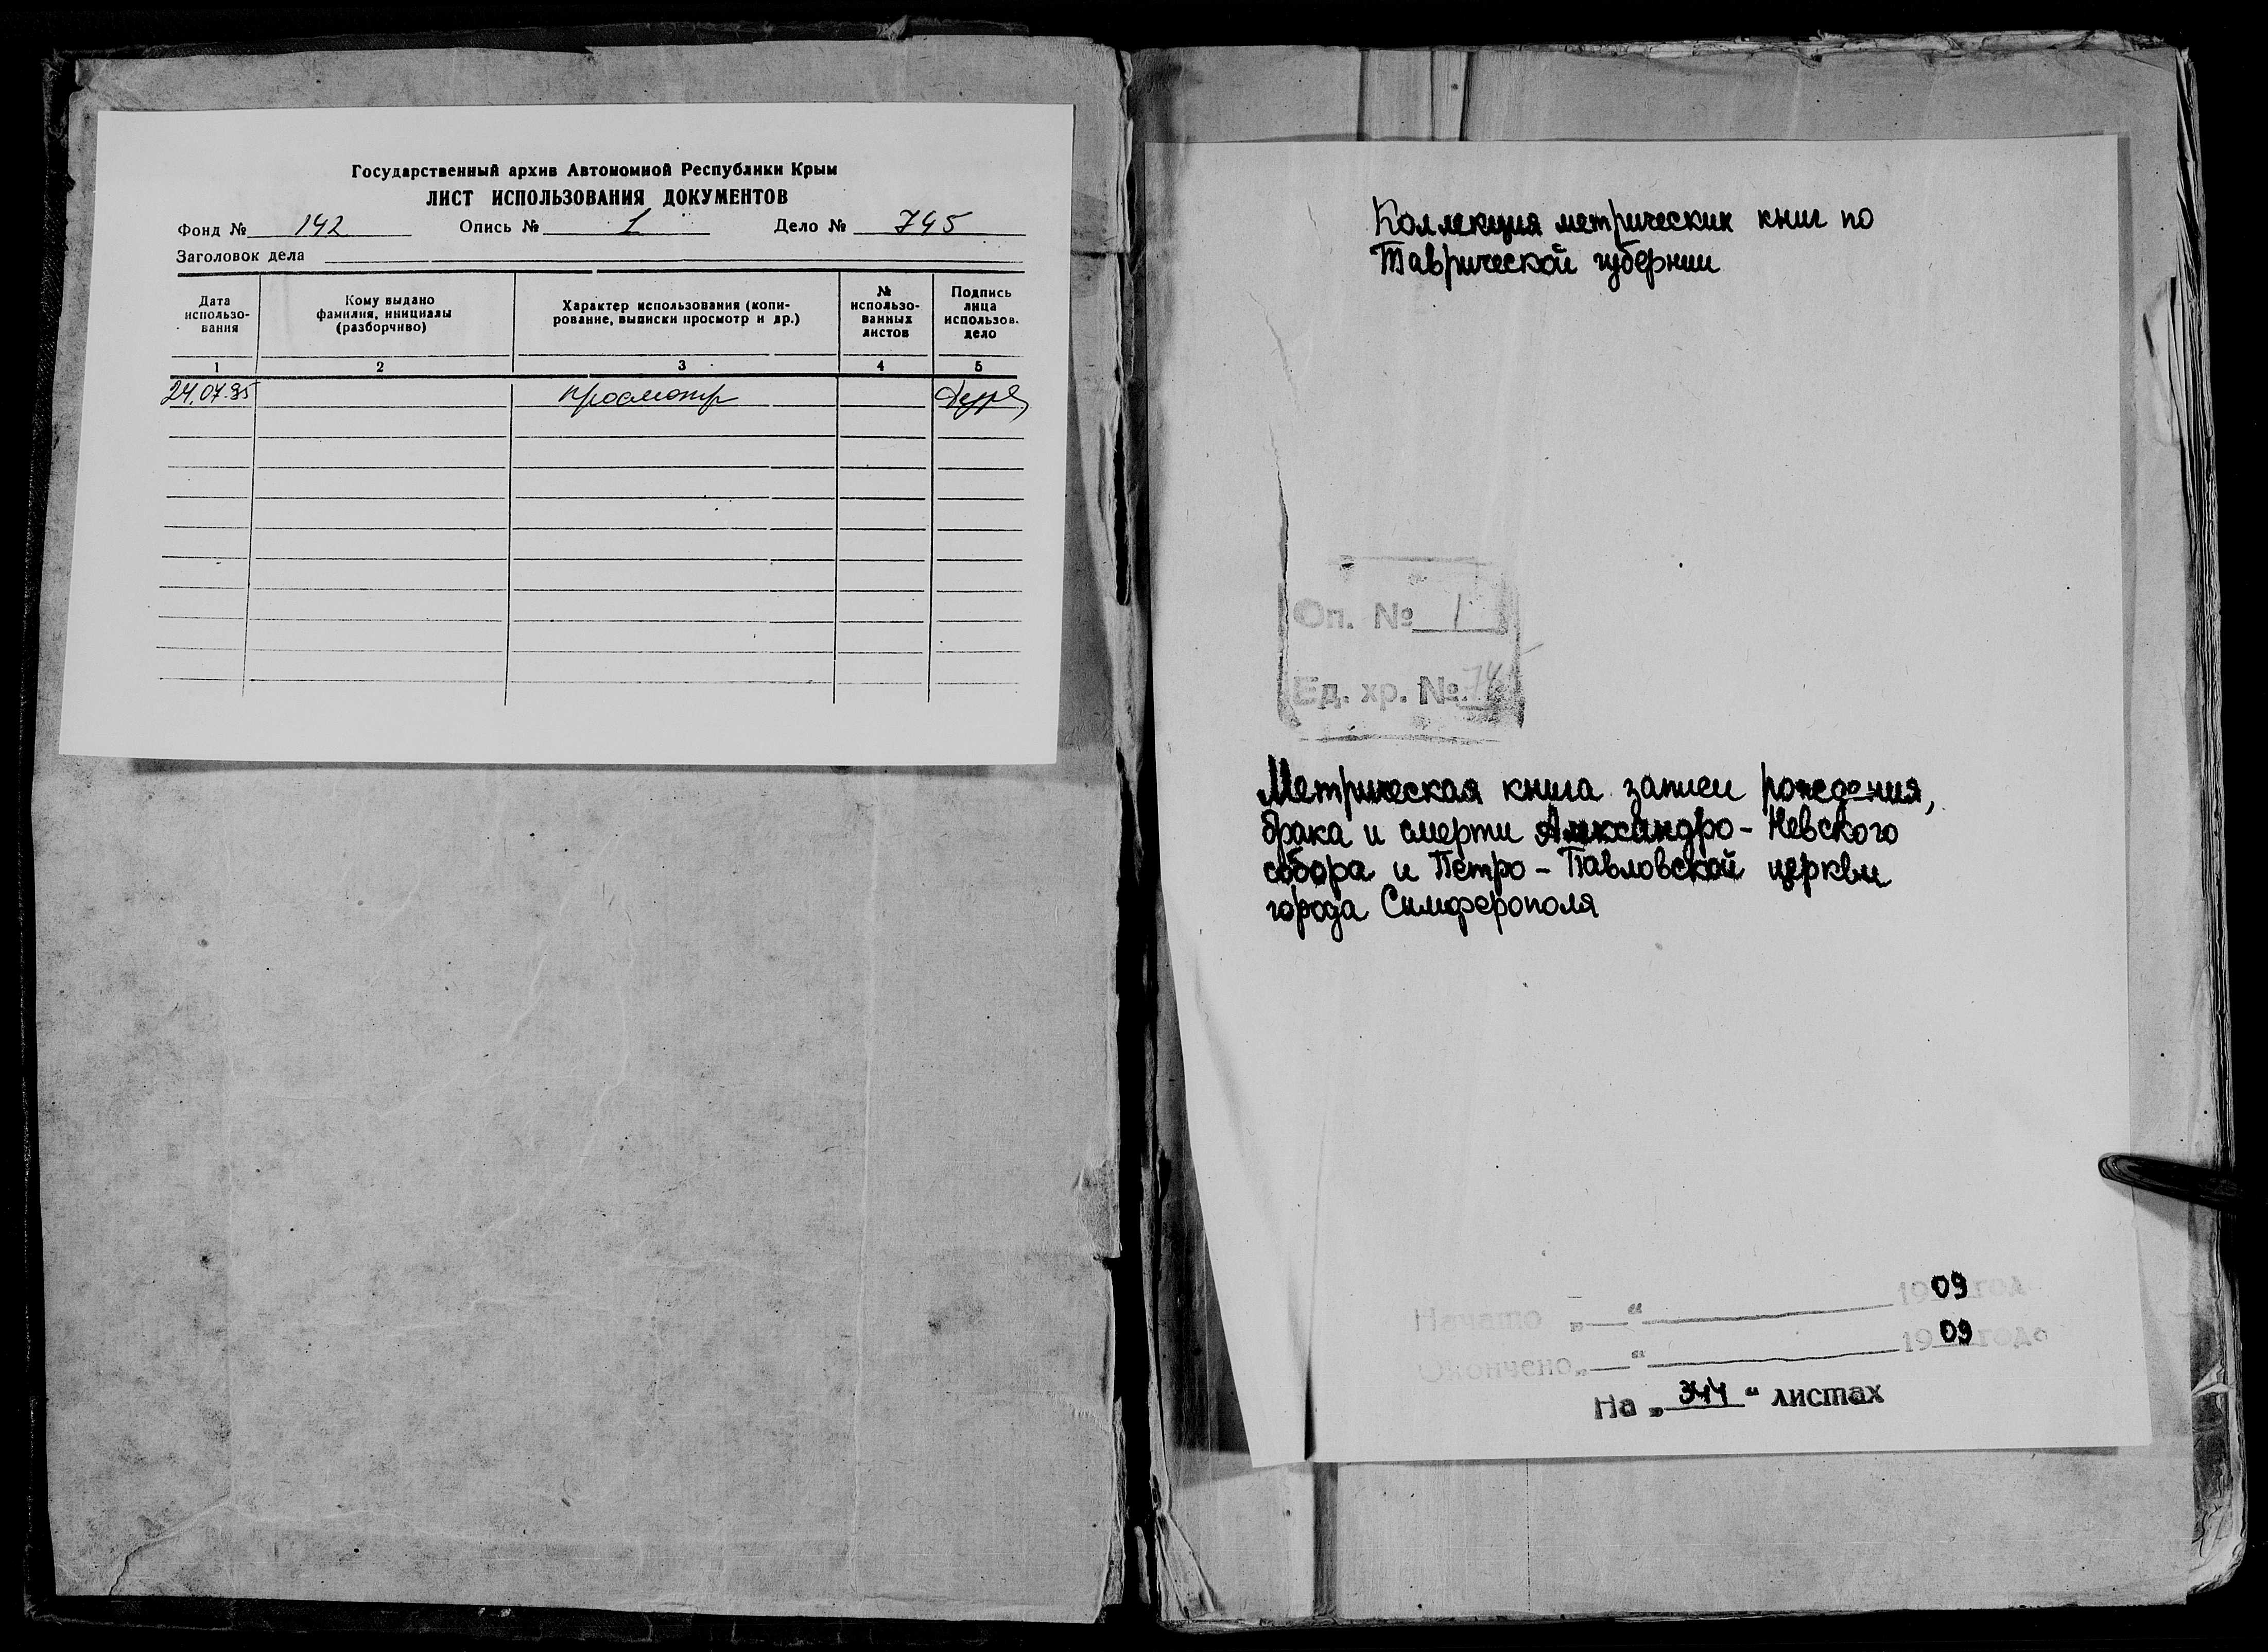 Государственный архив Автономной Республики Крым
ЛИСТ ИСПОЛЬЗОВАНИЯ ДОКУМЕНТОВ
Фонд № 142 Опись № 1 Дело № 745
Заголовок дела
Дата использо-вания
Кому выдано фамилия, инициалы (разборчиво)
Характер использования (копи-рование, выписки просмотр и др.)
№ использо-ванных листов
Подпись лица использов. дело
1 2 3 4 5
24.07.95 просмотр
Коллекция метрических книг по
Таврической губернии
Оп. № 1
Ед. хр. №
Метрическая книга записи рождения,
брака и смерти Александро-Невского
собора и Петро-Павловской церкви
города Симферополя
Начато „ “ 1909 год
Окончено „ “ 1909 года
На „344“ листах